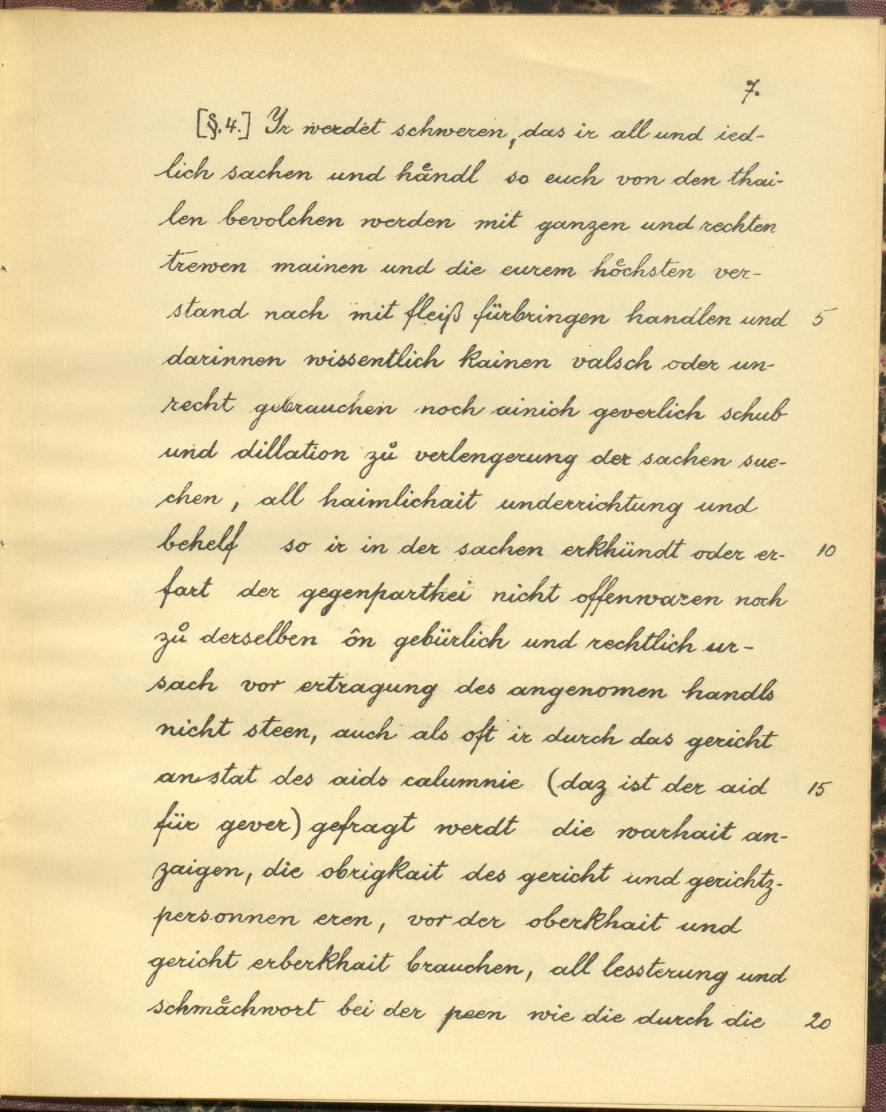 7.
[§.4.] Yr werdet schweren, das ir all und ied-
lich sachen und håndl so euch von den thai-
len bevolchen werden mit ganzen und rechten
trewen mainen und die eurem hoͤchsten ver-
stand nach mit fleiß fürbringen handlen und 5
darinnen wissentlich kainen valsch oder un-
recht gebrauchen noch ainich geverlich schub
und dillation zů verlengerung der sachen sue-
chen, all haimlichait underrichtung und
behelf so ir in der sachen erkhündt oder er- 10
fart der gegenparthei nicht offenwaren noch
zů derselben ôn gebürlich und rechtlich ur-
sach vor ertragung des angenomen handls
nicht steen, auch als oft ir durch das gericht
anstat des aids calumnie (daz ist der aid 15
für gever) gefragt werdt die warhait an-
zaigen, die obrigkait des gericht und gerichtz-
personnen eren, vor der oberkhait und
gericht erberkhait brauchen, all lessterung und
schmaͤchwort bei der peen wie die durch die 20